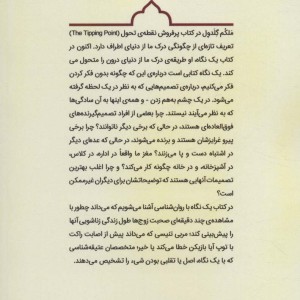 ملکم گلدول در کتاب پرفروش نقطه‌ی تحول (The Tipping Point)
تعریف تازه‌ای از چگونگی درک ما از دنیای اطراف دارد. اکنون در
کتاب یک نگاه، او طریقه‌ی درک ما از دنیای درون را متحول می
کند. یک نگاه کتابی است درباره‌ی این که چگونه بدون فکر کردن
فکر می‌کنیم، درباره‌ی تصمیم‌هایی که به نظر در یک لحظه گرفته
می‌شود. در یک چشم به‌هم زدن - و همه‌ی اینها به آن سادگی‌ها
که به نظر می‌آیند نیستند. چرا بعضی از افراد تصمیم‌گیرنده‌های
فوق‌العاده‌ای هستند، در حالی که برخی دیگر ناتوانند؟ چرا برخی
پیرو غرایزشان هستند و برنده می‌شوند، در حالی که عده‌ای دیگر
در اشتباه دست و پا می‌زنند؟ مغز ما واقعاً در اداره، در کلاس،
در آشپزخانه، و در خانه چگونه کار می‌کند؟ و چرا اغلب بهترین
تصمیمات آنهایی هستند که توضیحاتشان برای دیگران غیرممکن
است؟
در کتاب یک نگاه با روان‌شناسی آشنا می‌شویم که می‌داند چطور با
مشاهده‌ی چند دقیقه‌ای صحبت زوج‌ها طول زندگی زناشویی آنها
را پیش‌بینی کند؛ مربی تنیسی که می‌داند پیش از اصابت راکت
با توپ آیا بازیکن خطا می‌کند یا خیر؛ متخصصان عتیقه‌شناسی
که با یک نگاه، اصل یا تقلبی بودن شیء را تشخیص می‌دهند.